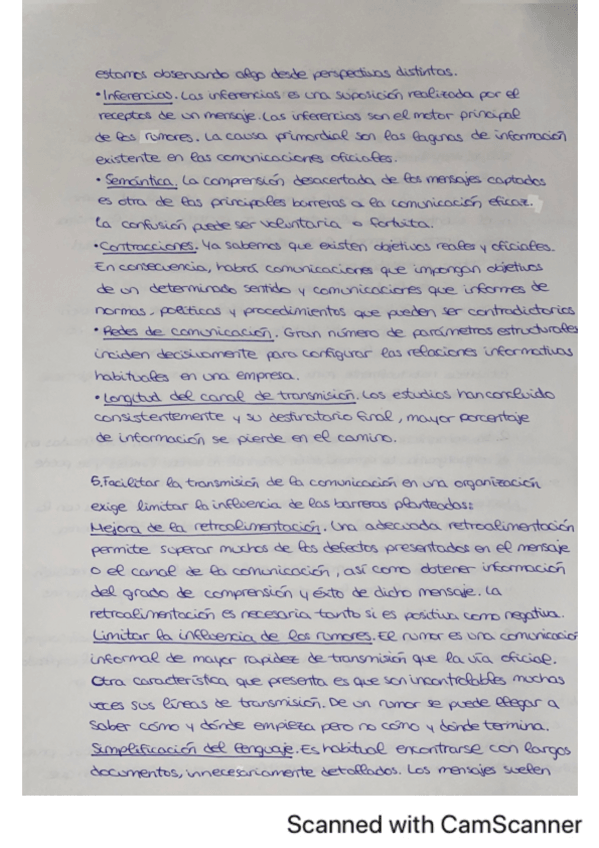 estamos observando algo desde perspectivas distintas.
• Inferencias. Las inferencias es una suposición realizada por el
receptos de un mensaje. Las inferencias son el motor principal
de los rumores. La causa primordial son las lagunas de información
existente en las comunicaciones oficiales.
• Semántica. La comprensión desacertada de los mensajes captados
es otra de las principales barreras a la comunicación eficaz.
La confusión puede ser voluntaria o fortuita.
• Contracciones. Ya sabemos que existen objetivos reales y oficiales.
En consecuencia, habrá comunicaciones que impongan objetivos
de un determinado sentido y comunicaciones que informes de
normas, políticas y procedimientos que pueden ser contradictorios
• Redes de comunicación. Gran número de parámetros estructurales
inciden decisivamente para configurar las relaciones informativas
habituales en una empresa.
• Longitud del canal de transmisión. Los estudios han concluido
consistentemente y su destinatario final, mayor porcentaje
de información se pierde en el camino.
5. Facilitar la transmisión de la comunicación en una organización
exige limitar la influencia de las barreras planteadas:
Mejora de la retroalimentación. Una adecuada retroalimentación
permite superar muchos de los defectos presentados en el mensaje
o el canal de la comunicación, así como obtener información
del grado de comprensión y éxito de dicho mensaje. La
retroalimentación es necesaria tanto si es positiva como negativa.
Limitar la influencia de los rumores. El rumor es una comunicació
informal de mayor rapidez de transmisión que la vía oficial.
Otra característica que presenta es que son incontrolables muchas
veces sus líneas de transmisión. De un rumor se puede llegar a
saber cómo y dónde empieza pero no cómo y dónde termina.
Simplificación del lenguaje. Es habitual encontrarse con largos
documentos, innecesariamente detallados. Los mensajes suelen
Scanned with CamScanner